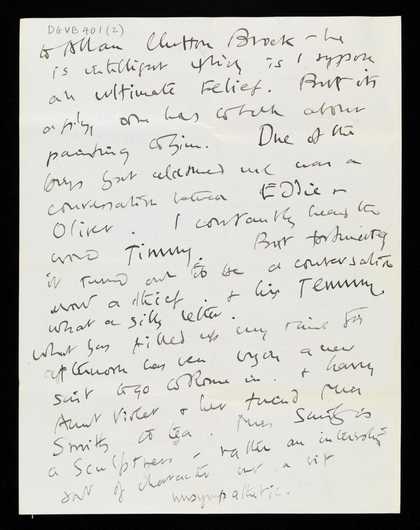 DGVB 401 (2)
to Allan Clutton Brock - he
is intelligent which is I suppose
an ultimate relief. But its
a pity one has to talk about
painting to him. One of the
that alarmed me was a
conversation between Eddie &
Oliver. I constantly heard the
word Timmy. But fortunately
it turned out to be a conversation
about a thief. & his Temmy.
What a silly letter.
What has filled up my time this
afternoon has been a new
suit to go to Rome in. & having
Aunt Violet & her friend Miss
Smith to tea. Miss Smith is
a Sculptress - rather an interesting
sort of character but a bit
unsympathetic.